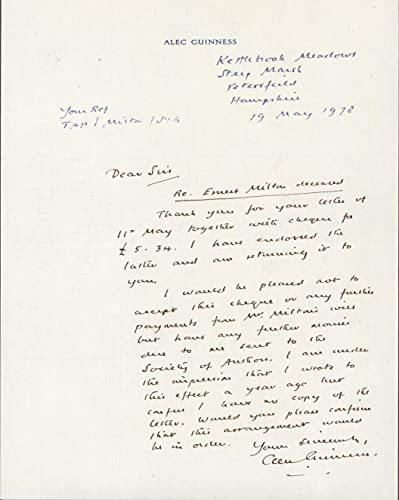 ALEC GUINNESS
Kettlebrook Meadows
Steep Marsh
Petersfield
Hampshire
19 May 1978
Your Ref
T.AM / Milton / JYG
Dear Sirs
Re. Ernest Milton deceased
Thank you for your letter of
11th May together with cheque for
£5.34. I have endorsed the
latter and am returning it to
you.
I would be pleased not to
accept this cheque or any further
payments from Mr. Milton's will
but have any further monies
due to me sent to the
Society of Authors. I am under
the impression that I wrote to
this effect a year ago but
confess I have no copy of the
letter. Would you please confirm
that this arrangement would
be in order.
Yours sincerely,
Alec Guinness